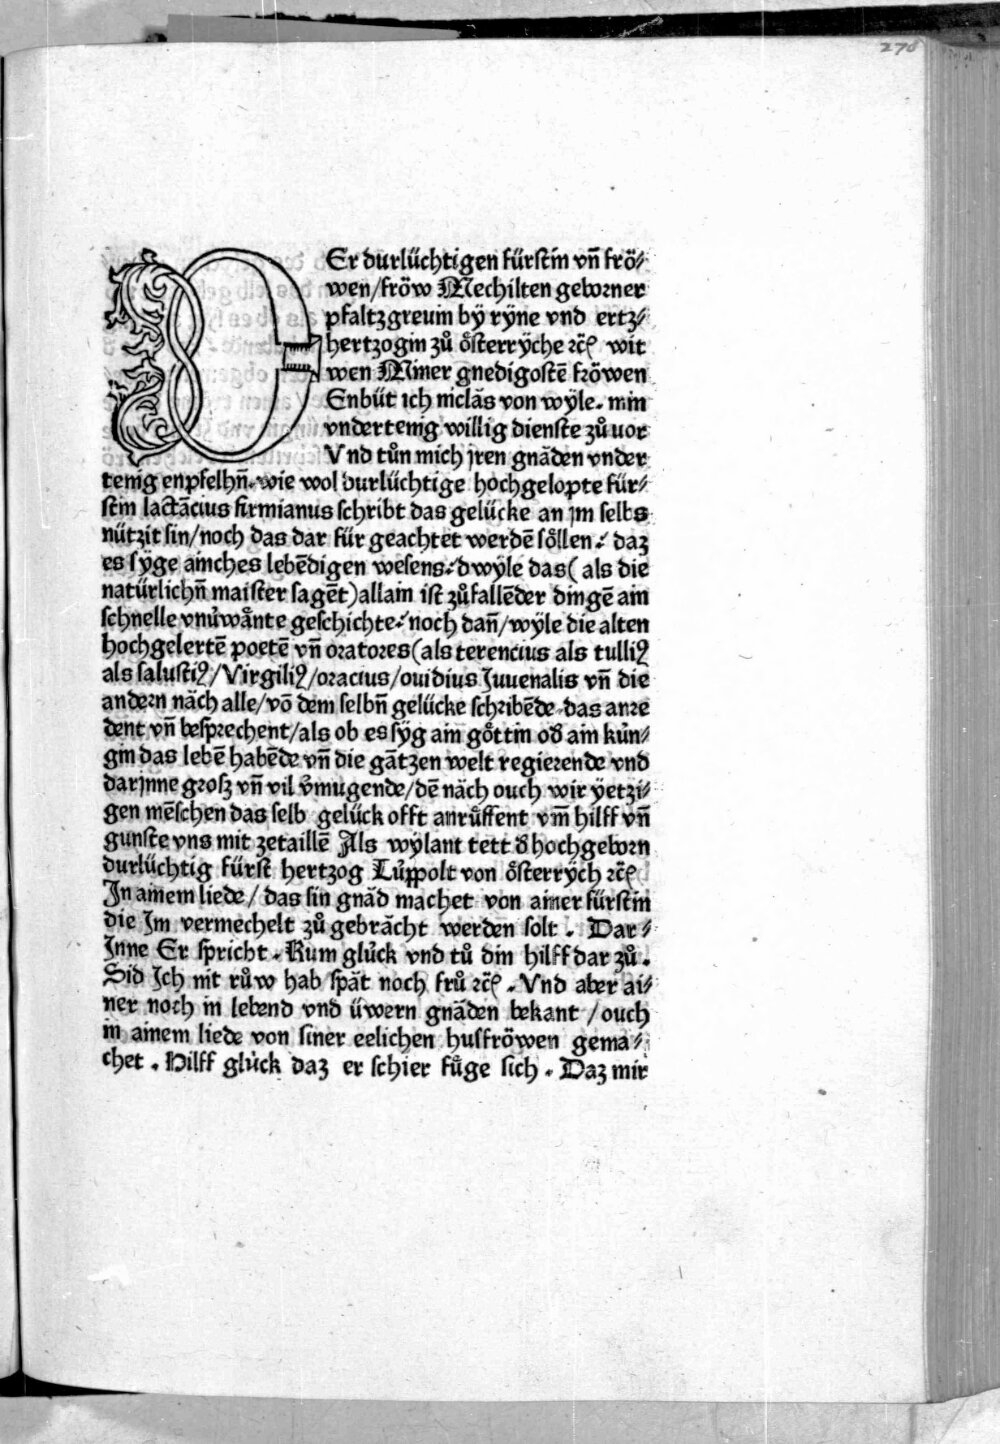 278
DEr durlüchtigen fürstin vn̄ frö⸗
wen/fröw Mechilten geborner
pfaltzgreuin bÿ rÿne vnd ertz⸗
hertzogin zů ỏsterrÿche ꝛc̄ wit
wen Miner gnedigostē fröwen
Enbüt ich niclās von wÿle. min
vndertenig willig dienste zů uor
Vnd tůn mich jren gnāden vnder
tenig enpfelhn̄. wie wol durlüchtige hochgelopte für⸗
stin lactācius firmianus schribt das gelücke an jm selbs
nützit sin/noch das dar für geachtet werdē sỏllen⸗ daz
es sÿge ainches lebēdigen wesens⸗ dwÿle das( als die
natürlichn̄ maister sagēt)allain ist zůfallēder dingē ain
schnelle vnůwånte geschichte⸗ noch dan̄/wÿle die alten
hochgelertē poetē vn̄ oratores(als terencius als tulliꝰ
als salustiꝰ/Virgiliꝰ/oracius/ouidius Juuenalis vn̄ die
andern nāch alle/vō dem selbn̄ gelücke schribēde das anre
dent vn̄ besprechent/als ob es sÿg ain gỏttin oď ain kůn⸗
gin das lebē habēde vn̄ die gātzen welt regierende vnd
darjnne grosz vn̄ vil v̉mugende/dē nāch ouch wir ÿetzi⸗
gen mēschen das selb gelück offt anrůffent vm̄ hilff vn̄
gunste vns mit zetaillē Als wÿlant tett ď hochgeborn
durlüchtig fürst hertzog Lůppolt von ỏsterrÿch ꝛc̄
Jn ainem liede/ das sin gnād machet von ainer fürstin
die Jm vermechelt zů gebrācht werden solt . Dar⸗
Jnne Er spricht . Kum glůck vnd tů din hilff dar zů.
Sid Jch nit růw hab spāt noch frů ꝛc̄ . Vnd aber ai⸗
ner noch in lebend vnd üwern gnāden bekant /ouch
in ainem liede von siner eelichen husfröwen gema⸗
chet . Hilff glůck daz er schier fůge sich . Daz mir